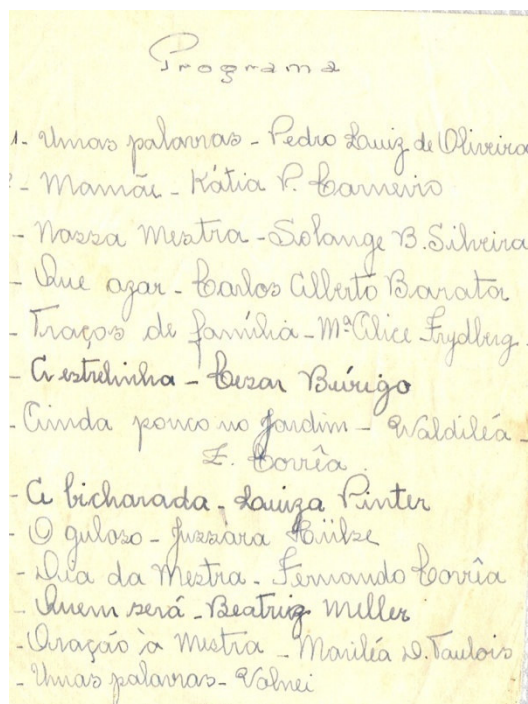 Programa
1- Umas palavras - Pedro Luiz de Oliveira
- Mamãe - Kátia P. Carneiro
- Nossa Mestra - Solange B. Silveira
- Que azar - Carlos Alberto Barato
- Traços de família - Mª Alice Frydberg.
- A estrelinha - Cezar Búrigo
- Ainda pouco no Jardim - Waldiléa -
Z. Corrêa.
- A bicharada - Luiza Pinter
- O guloso - Jussara Hülse
- Dia da Mestra - Fernando Corrêa
- Quem será - Beatriz Miller
- Oração à Mestra - Mariléa D. Taulois
- Umas palavras - Valnei